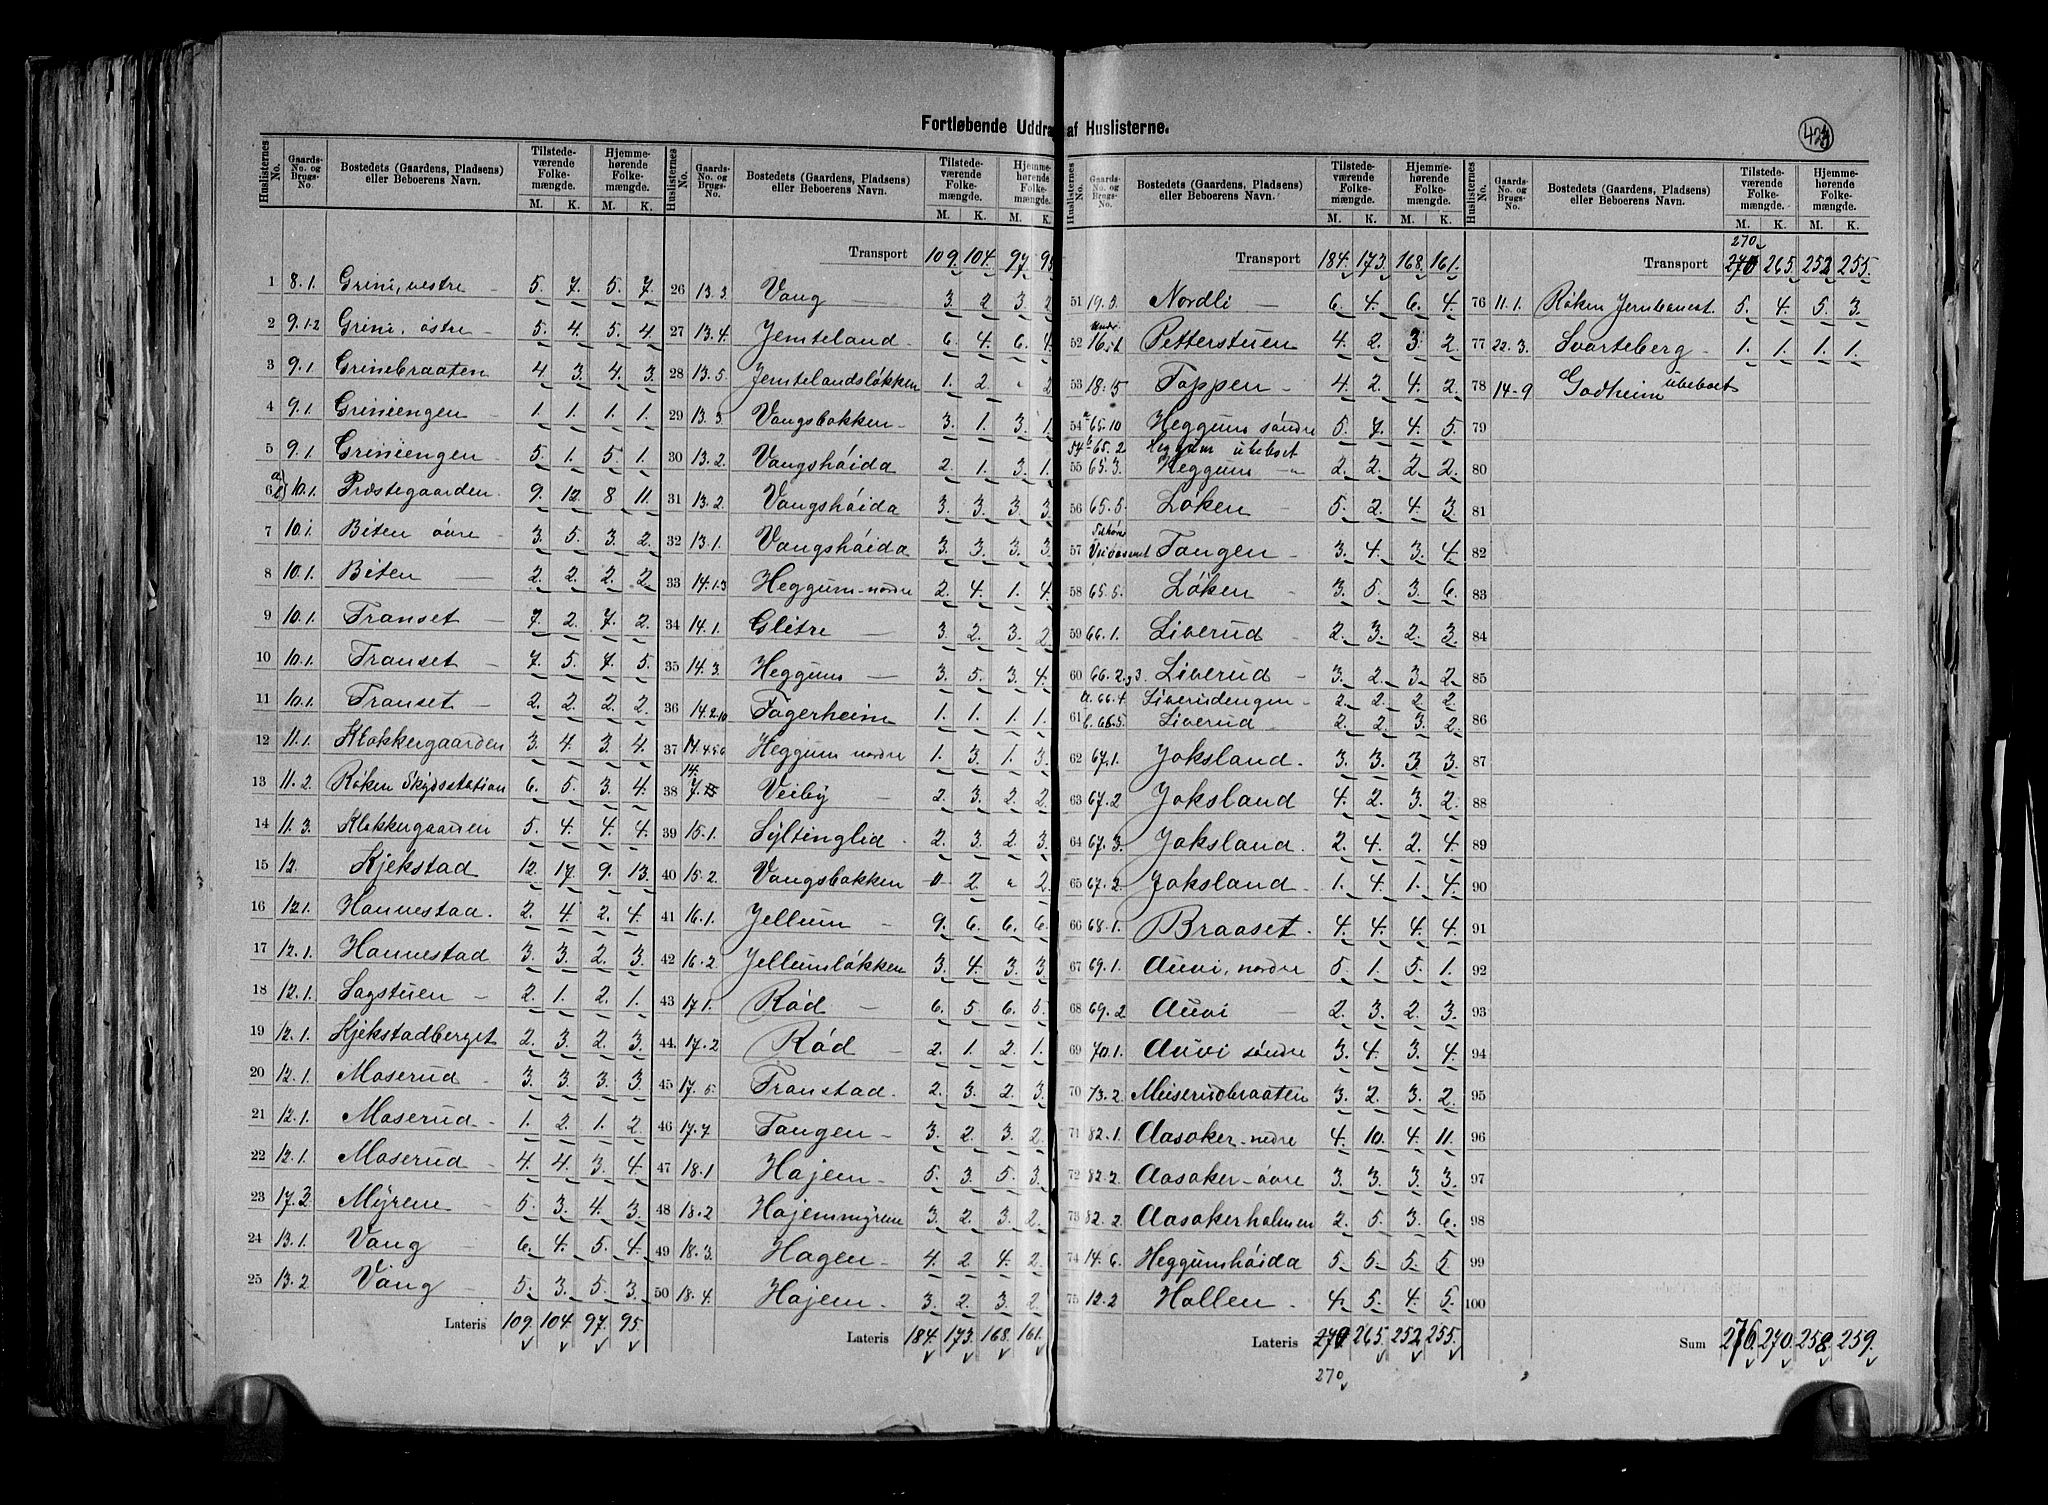 Fortløbende Uddra af Huslisterne.
403
Huslisternes No. | Gaards-No. og Brugs-No. | Bostedets (Gaardens, Pladsens) eller Beboerens Navn. | Tilstedeværende Folkemængde. M. K. | Hjemmehørende Folkemængde. M. K.
1 8.1. Grini, vestre 5. 7. 5. 7.
2 9.1-2 Grini, østre 5. 4. 5. 4
3 9.1 Grinibraaten 4 3. 4. 3.
4 9.1. Griniengen 1. 1. 1. 1.
5 9.1 Griniengen 5. 1. 5 1.
6 10.1. Præstegaarden 9. 12. 8 11.
7 10.1. Biten övre 3. 5. 3. 2.
8 10.1. Biten 2. 2. 2. 2
9 10.1. Transet 7. 2. 7. 2.
10 10.1. Transet 7. 5. 7. 5.
11 10.1. Transet 2. 2. 2. 2
12 11.1. Klokkergaarden 3. 4. 3. 4.
13 11.2. Röken Skydsstation 6. 5. 3. 4.
14 11.3. Klokkergaarden 5. 4. 4. 4.
15 12. Kjekstad 12. 17. 9. 13.
16 12.1. Hannestad. 2. 4. 2. 4.
17 12.1. Hannestad 3. 3. 2. 3.
18 12.1. Sagstuen 2. 1. 2. 1.
19 12.1. Kjekstadberget 2. 3. 2. 3.
20 12.1. Maserud 3. 3. 3. 3.
21 12.1. Maserud 1. 2. 1. 2.
22 12.1. Maserud 4. 4. 3. 4.
23 17.3. Myrene 5. 3. 4. 3.
24 13.1. Vang 6. 4. 5. 4.
25 13.2 Vang 5. 3. 5. 3.
Lateris 109. 104. 97. 95.
Transport 109. 104. 97. 95
26 13.3. Vang 3. 2 3. 2
27 13.4. Jemteland 6. 4. 6. 4.
28 13.5. Jemtelandsløkken 1. 2. " 2
29 13.3. Vangsbakken 3. 1. 3. 1.
30 13.2. Vangshöida 2. 1. 3. 1.
31 13.2. Vangshöida 3. 3. 3. 3.
32 13.1. Vangshöida 3. 3. 3. 3.
33 14.1.3 Heggum nordre 2. 4. 1. 4.
34 14.1. Glitre 3. 2. 3. 2
35 14.3. Heggum 3. 5. 3. 4.
36 14.2.10 Fagerheim 1. 1. 1. 1.
37 14.4.5.6 Heggum nordre 1. 3. 1. 3.
38 14. 7. Veiby 2. 3. 2. 2.
39 15.1. Syltinglid 2. 3. 2. 3.
40 15.2. Vangsbakken 0. 2. " 2.
41 16.1. Jellum 9. 6. 6. 6.
42 16.2 Jellumløkken 3. 4. 3. 3.
43 17.1. Röd 6. 5. 6. 5.
44 17.2 Röd 2. 1. 2. 1.
45 17.5. Transtad 2. 3. 2. 3.
46 17.7. Tangen 3. 2. 3. 2.
47 18.1 Højem 5. 3. 5. 3.
48 18.2 Højemmyrene 3. 2. 3. 2.
49 18.3. Hagen 4. 2. 4. 2.
50 18.4. Højem 3. 2. 3. 2.
Lateris 184. 173. 168. 161.
Transport 184. 173. 168. 161.
51 19.3. Nordli 6. 4. 6. 4.
52 Under 16.1 Petterstuen 4. 2. 3. 2.
53 18.5 Toppen 4. 2. 4. 2.
54 a 65.10 Heggum søndre 5. 7. 4. 5.
54 b 65.2 Heggum ubeboet
55 65.3. Heggum " 2. 2. 2. 2.
56 65.5. Løken 5. 2. 4. 3.
57 Tangen 3. 4. 3. 4.
58 65.5. Løken 3. 5. 3. 6.
59 66.1. Liverud 2. 3. 2. 3.
60 66.2,3. Liverud 3. 2. 3. 2.
61 a. 66.4. Liverudengen 2. 2. 2. 2.
b. 66.5. Liverud 2. 2. 3. 2.
62 67.1. Joksland 3. 3. 3. 3.
63 67.2 Joksland 4. 2. 3. 2.
64 67.3. Joksland 2. 4. 2. 4.
65 67.2. Joksland 1. 4. 1. 4.
66 68.1. Braaset 4. 4. 4. 4.
67 69.1. Auvi, nordre 5. 1. 5. 1.
68 69.2 Auvi 2. 3. 2. 3.
69 70.1. Auvi søndre 3. 4. 3. 4.
70 73.2. Meiserudbraaten 3. 2. 3. 2.
71 82.1. Aasaker nedre 4. 10. 4. 11.
72 82.2. Aasaker övre 3. 3. 3. 3.
73 82.2. Aasakerholmen 2. 5. 3. 6.
74 14.6. Heggumshöida 5. 5. 5. 5.
75 12.2 Hallen 4. 5. 4. 5.
Lateris 270 265. 252. 255.
270
270
Transport 270 265. 252 255.
76 11.1. Röken Jernbanest. 5. 4. 5. 3.
77 22.3. Svarteberg 1. 1. 1. 1.
78 14-9 Godheim ubeboet
79
80
81
82
83
84
85
86
87
88
89
90
91
92
93
94
95
96
97
98
99
100
Sum 276. 270. 258. 259.